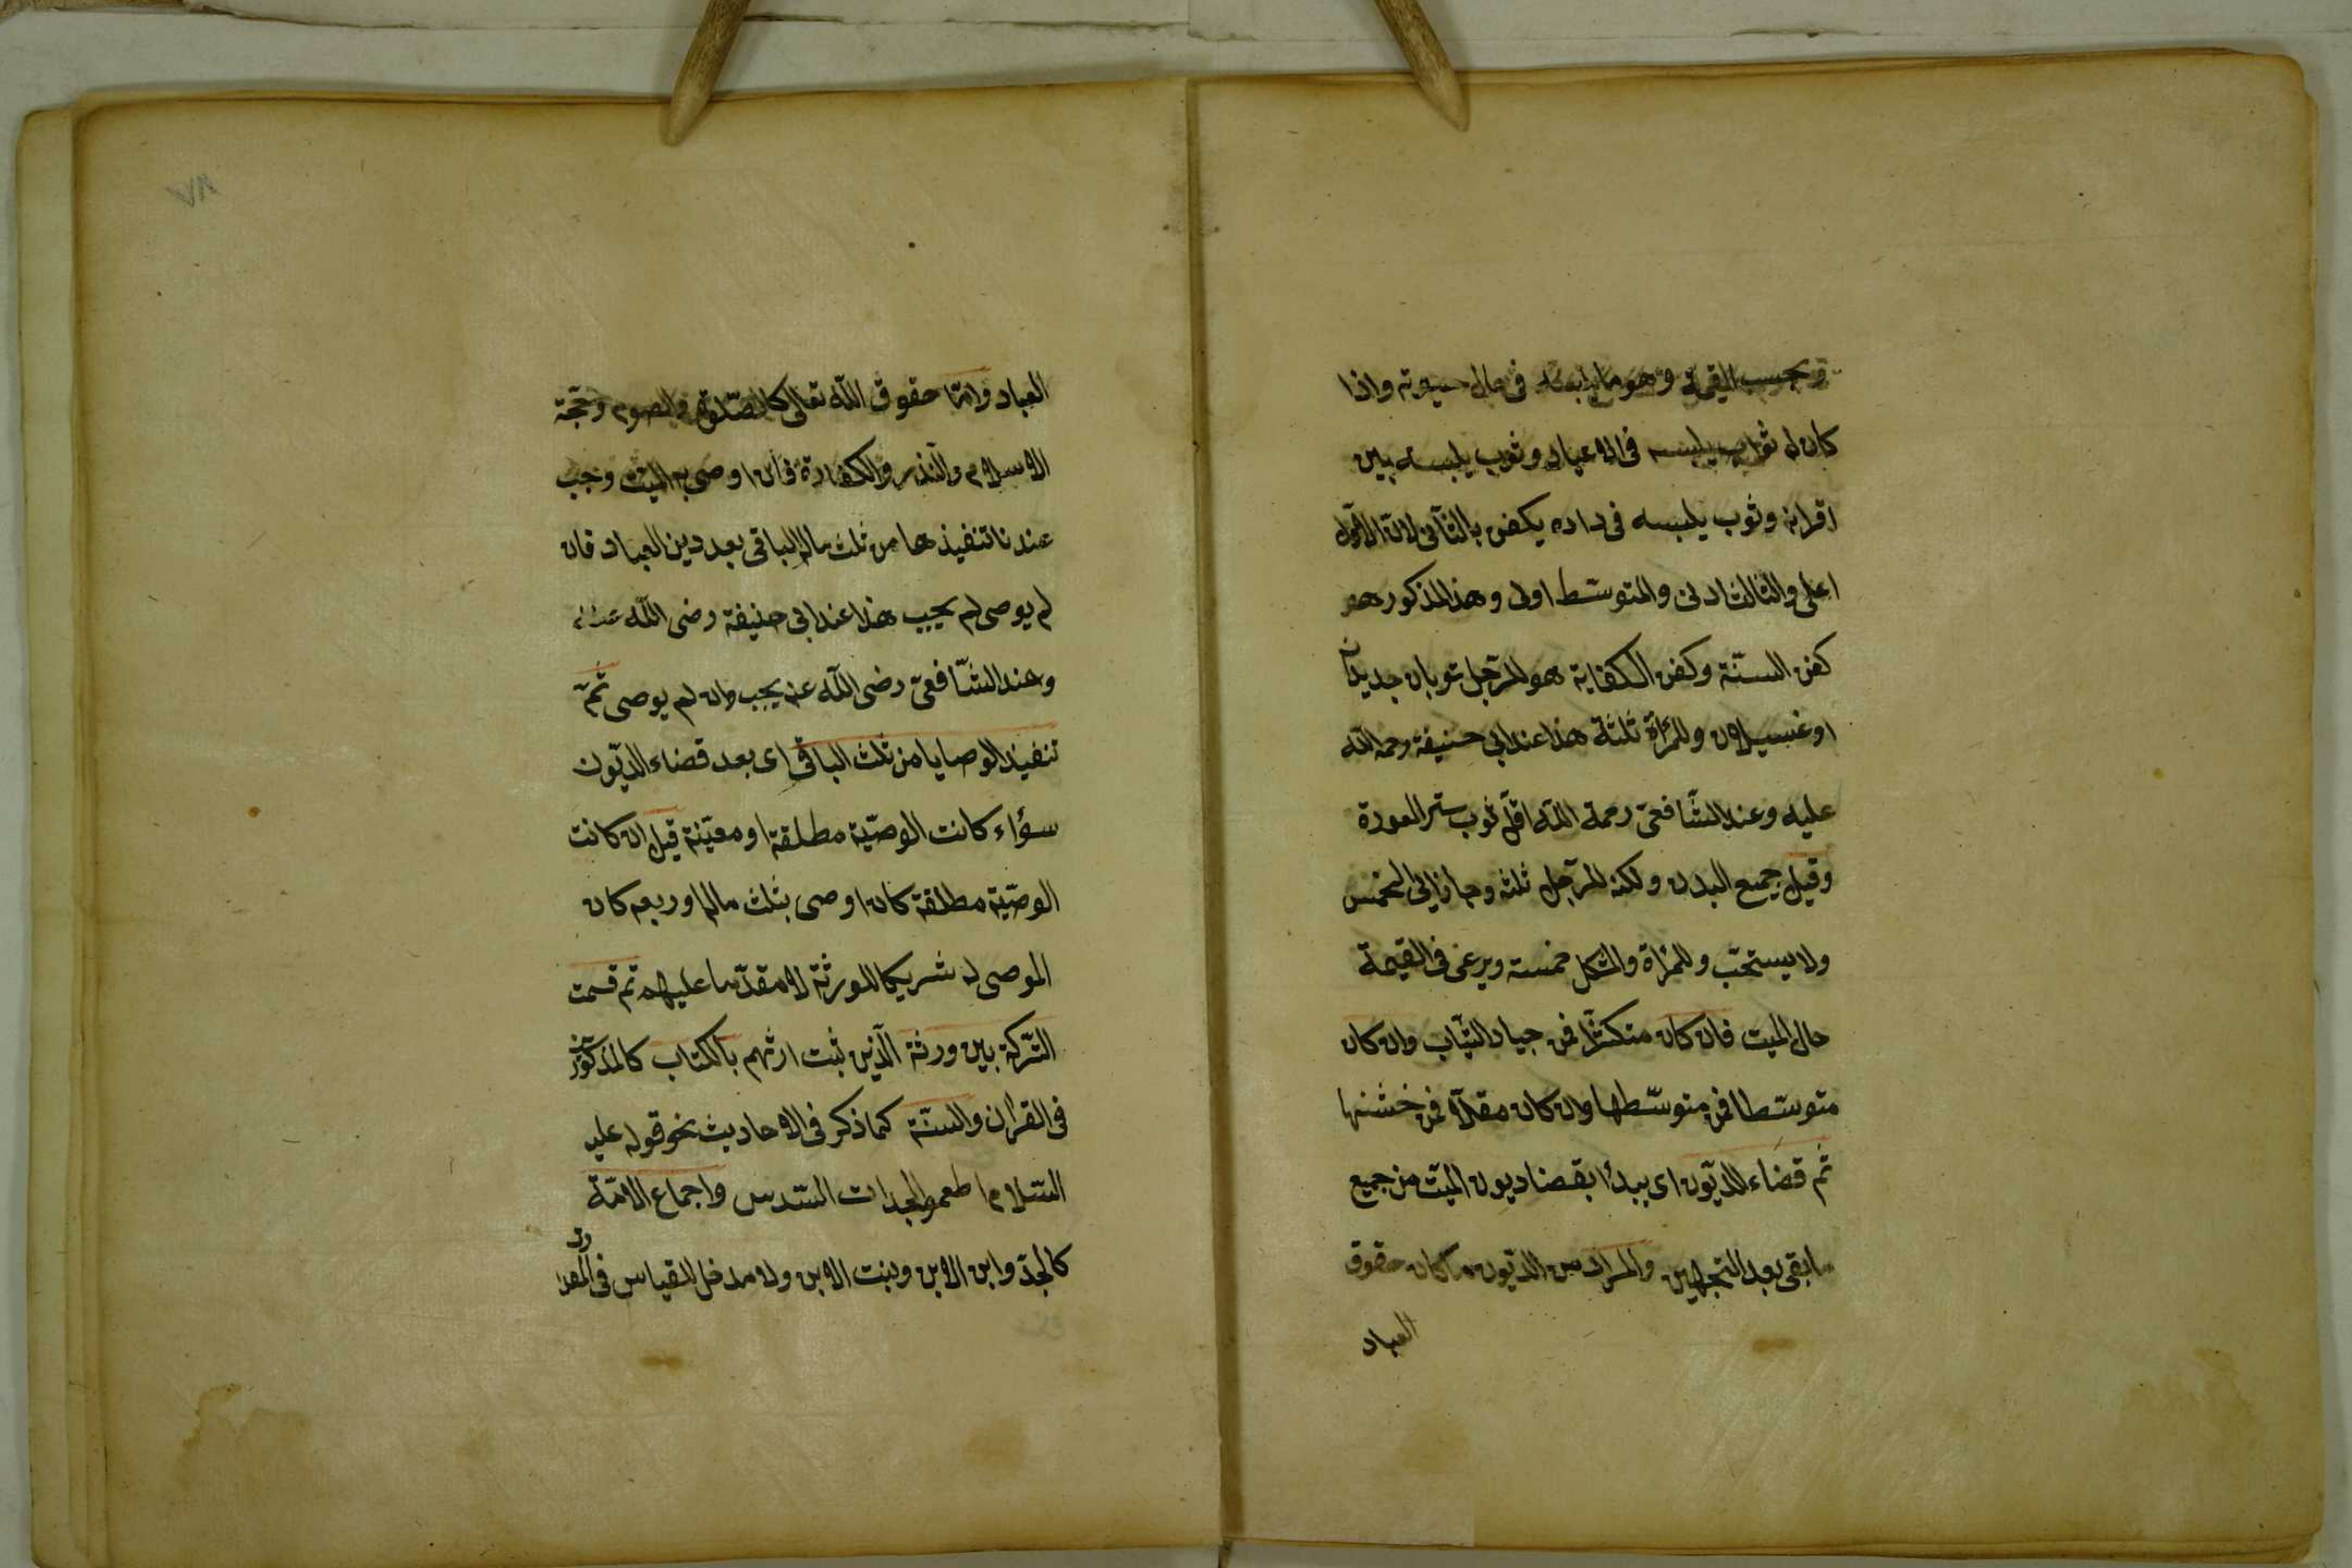 وبحسب القيمة وهو ما يلبسه في حال حيوته واذا
كان له ثواب يلبسه فى الاعياد وثوب يلبسه بين
اقرانه وثوب يلبسه فى داره يكفن بالثانى لان الاول
اعلى والثالث ادنى والمتوسّط اولى وهذ المذكور هو
كفن السنّة وكفن الكفاية هو للرّجل ثوبان جديدان
او غسيلان وللمرأة ثلثة هذا عند ابى حنيفة رحمة اللّه
عليه وعند الشّافعىّ رحمة اللّه اقلّ ثوب ستر العورة
وقيل جميع البدن ولكنه للرّجل ثلثه وجاز الى الخمس
ولا يستحبّ وللمرأة والمشكل خمسة ويرعى فى القيمة
حال الميت فان كان متكثرا فمن جياد الثّياب وان كان
متوسّطا فمن متوسّطها وان كان مقلّا فمن خشنها
ثم قضاء الديّون اى يبدأ بقضا ديون الميّت من جميع
ما بقى بعد التجهيز والمراد من الديّون ما كان حقوق
العباد
٧٨
العباد وامّا حقوق اللّه تعالى كالصّلوة والصوم وحجّة
الاسلام والنذر والكفارة فان اوصى به الميّت وجب
عندنا تنفيذها من ثلث ماله الباقى بعد دين العباد فان
لم يوصى لم يجب هذا عند ابى حنيفة رضى اللّه عنه
وعند الشّافعىّ رضى اللّه عنه يجب وان لم يوصى ثمّ
تنفيذ الوصايا من ثلث الباقى اى بعد قضاء الديّون
سؤاء كانت الوصّية مطلقة او معيّنة قيل ان كانت
الوصّية مطلقة كان اوصى بثلث ماله او ربعه كان
الموصى له شريكا للورثة لا مقدّما عليهم ثم قسمت
التّركة بين ورثة الّذين ثبت ارثهم بالكتاب كالمذكورين
فى القران والسنّة كما ذكر فى الاحاديث نحو قوله عليه
السّلام اطعموا الجدات السّدس واجماع الامّة
كالجدّ وابن الابن وبنت الابن ولا مدخل للقياس فى المقدار